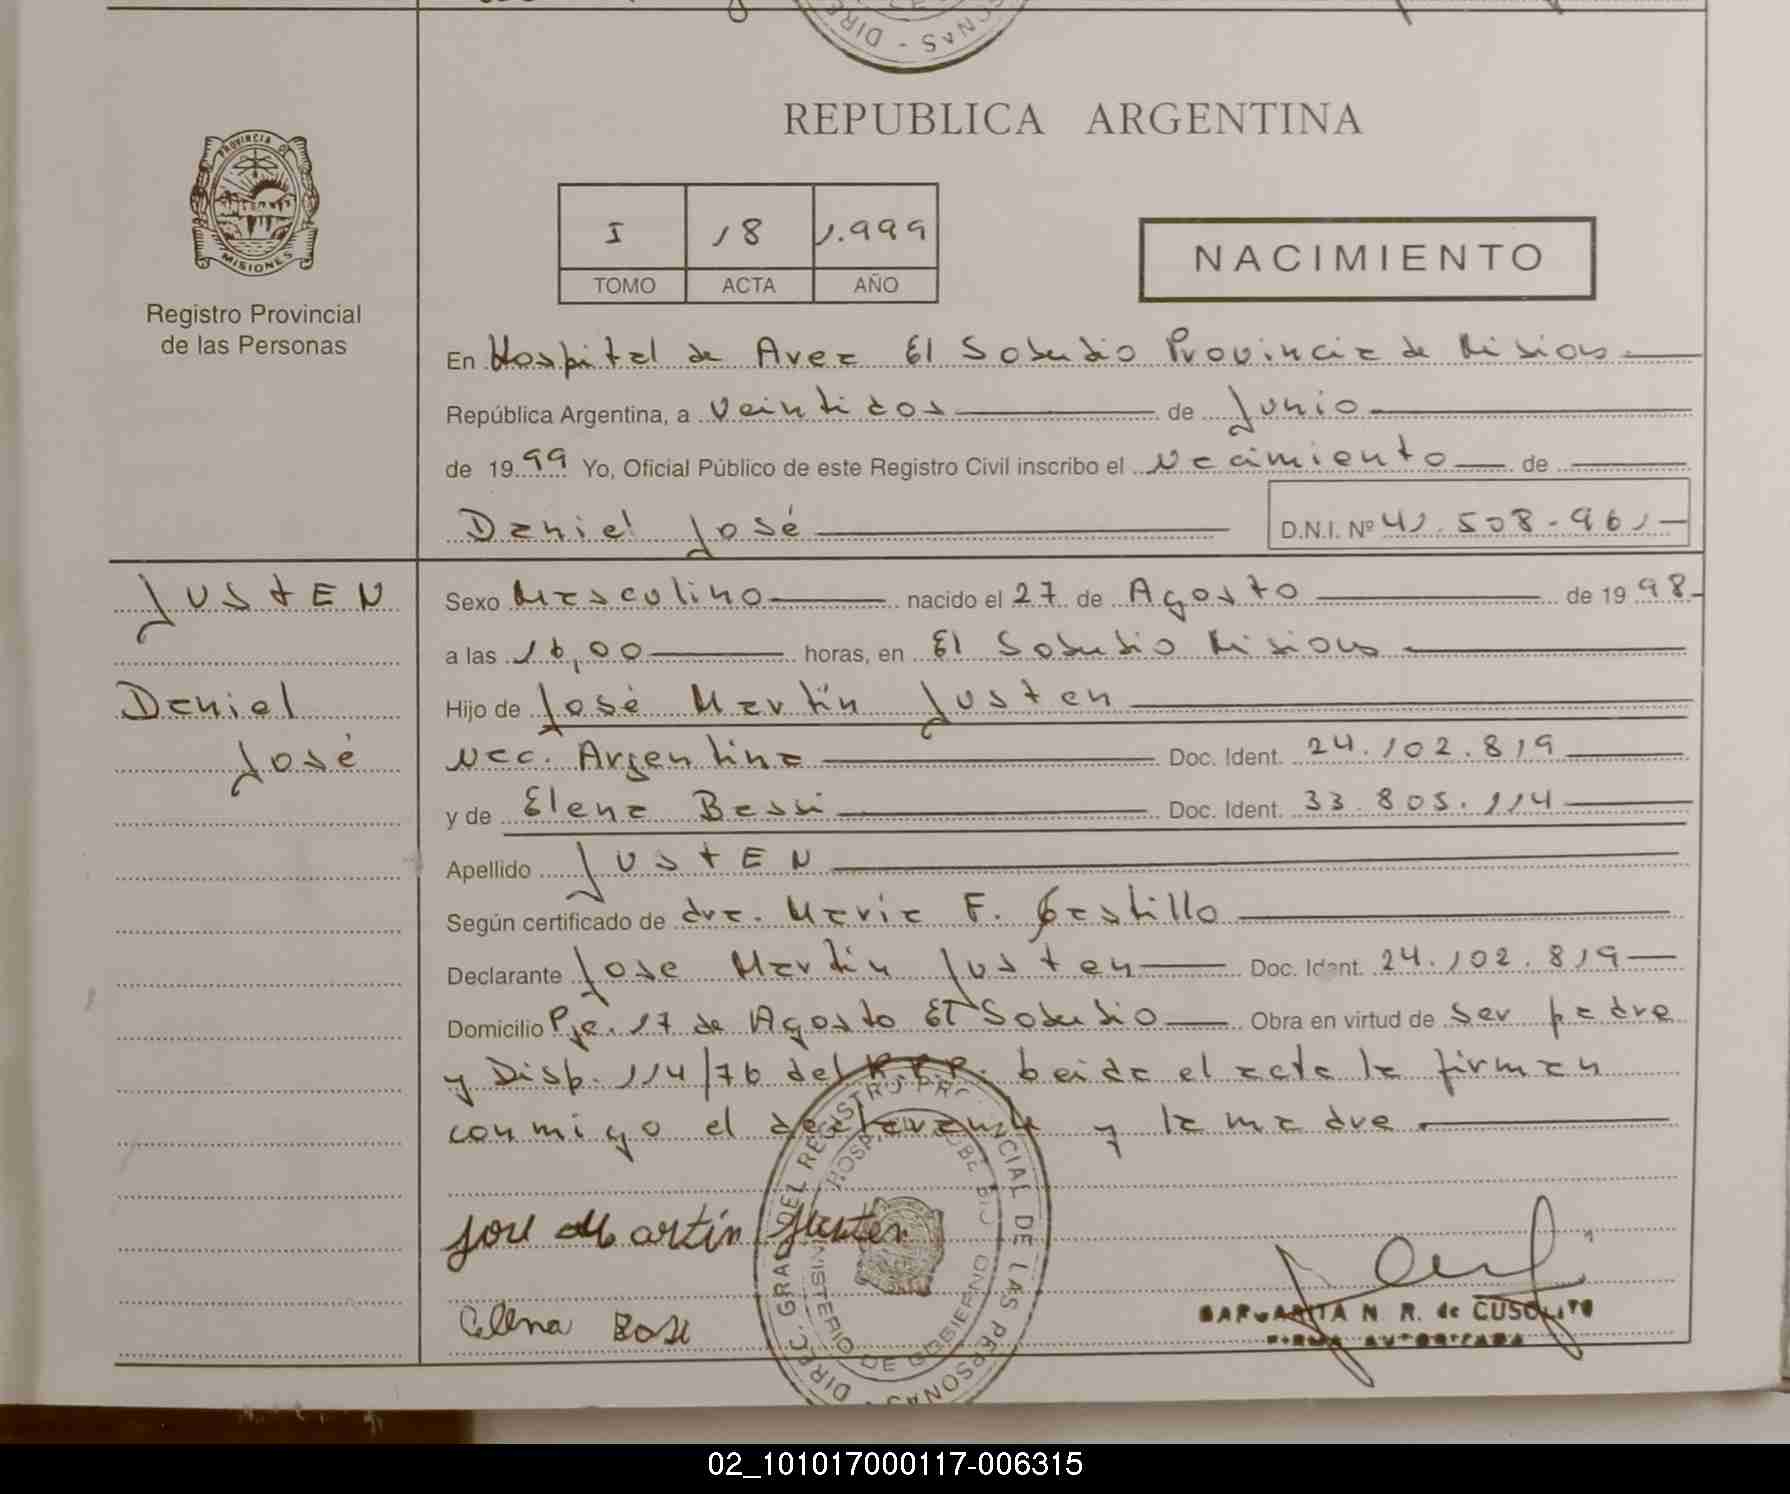 REPUBLICA ARGENTINA
PROVINCIA DE
MISIONES
Registro Provincial
de las Personas
I 18 1.999
TOMO ACTA AÑO
NACIMIENTO
En Hospital de Area El Soberbio Provincia de Misiones
República Argentina, a veintidos de Junio
de 1999 Yo, Oficial Público de este Registro Civil inscribo el Nacimiento de
Daniel José D.N.I. Nº 41.508.961
JUSTEN
Daniel
José
Sexo Masculino nacido el 27 de Agosto de 1998
a las 16,00 horas, en El Soberbio Misiones
Hijo de José Martín Justen
Nac. Argentina Doc. Ident. 24.102.819
y de Elena Bassi Doc. Ident. 33.805.114
Apellido JUSTEN
Según certificado de dra. Maria F. Castillo
Declarante Jose Martin Justen Doc. Ident. 24.102.819
Domicilio Pje. 17 de Agosto El Soberbio Obra en virtud de ser padre
y Disp. 114/76 del R.P.P. Leida el acta la firman
conmigo el declarante y la madre
José Martín Justen
Elena
MARGARITA N. R. de CUSOLITO
FIRMA AUTORIZADA
DIREC. GRAL. DEL REGISTRO PROVINCIAL DE LAS PERSONAS
MINISTERIO DE GOBIERNO
02_101017000117-006315